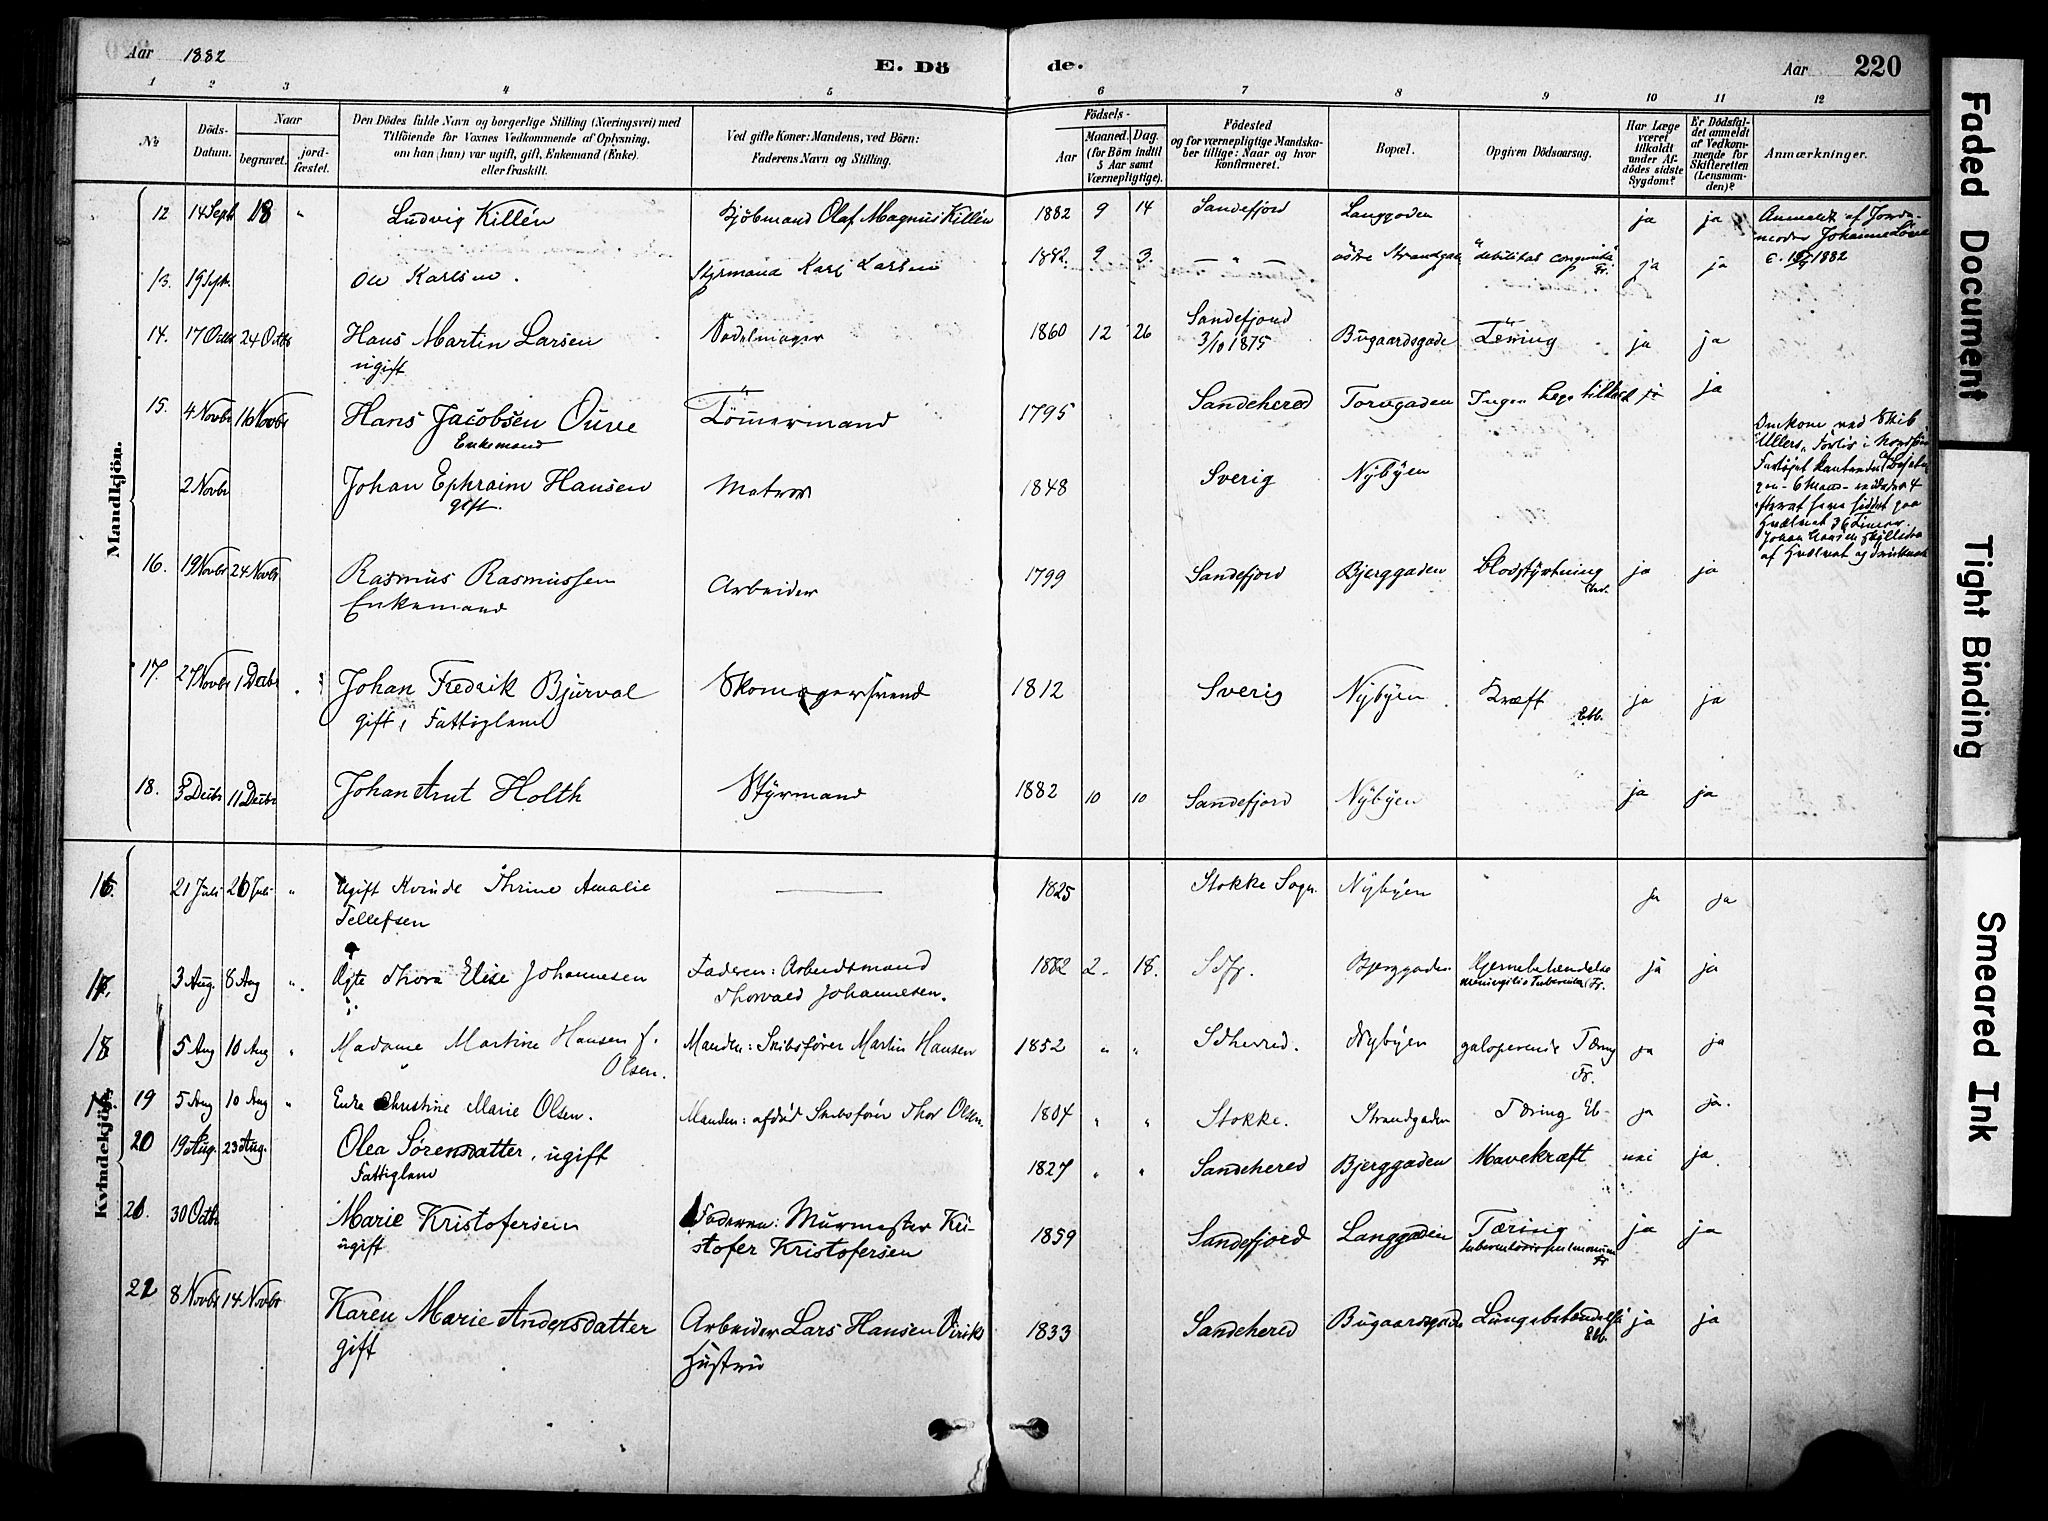 Aar 1882
E. Dö
de.
Aar
220
1 2 3 4 5 6 7 8 9 10 11 12
No
Döds-Datum.
Naar
begravet.
jord-fæstet.
Den Dödes fulde Navn og borgerlige Stilling (Næringsvei) med
Tilföiende for Voxnes Vedkommende af Oplysning,
om han (hun) var ugift, gift, Enkemand (Enke).
eller fraskilt.
Ved gifte Koner: Mandens, ved Börn:
Faderens Navn og Stilling.
Födsels-
Aar
Maaned. Dag.
(for Börn indtil
5 Aar samt
Værnepligtige).
Födested
og for værnepligtige Mandska-
ber tillige: Naar og hvor
konfirmeret.
Bopæl.
Opgiven Dödsaarsag.
Har Læge
været
tilkaldt
under Af-
dödes sidste
Sygdom?
Er Dödsfal-
det anmeldt
af Vedkom-
mende for
Skifteretten
(Lensman-
den)?
Anmærkninger.
Mandkjön.
12 14 Sept 18 " Ludvig Killén Kjöbmand Olaf Magnus Killén 1882 9 14 Sandefjord Langgaden ja ja Anmeldt af Jorde-
moder Johanne
13. 19 Sept. Ole Karlsen. Styrmand Karl Larsen 1882 9 3. — " — östre Strandgade debilitas congenita Fr. ja ja 1882
14. 17 Octbr 24 Octbr Hans Martin Larsen Sadelmager 1860 12 26 Sandefjord Bugaardsgade Tæring ja ja
ugift
3/10 1875
15. 4 Novbr 16 Novbr Hans Jacobsen Ouve Tömmermand 1795 Sandehered Torvgaden Ingen Læge tilkaldt ja
Enkemand
2 Novbr Johan Ephraim Hansen Matros 1848 Sverig Nybyen
gift.
Druknede ved Skib
Ullers, Forlis i
Fartöjet kantrede
6 Mand
efterat have siddet paa
Hvælvet 36 Timer.
Johan Hansen skylledes
af Hvælvet og druknede
16. 19 Novbr 24 Novbr Rasmus Rasmussen Arbeider 1799 Sandefjord Bjerggaden Blodstyrtning ja ja
Enkemand
17. 27 Novbr 1 Decbr Johan Fredrik Bjurval Skomagersvend 1812 Sverig Nybyen Kræft Ebb. ja ja
gift, Fattiglem
18. 3 Decbr 11 Decbr Johan Arnt Holth Styrmand 1882 10 10 Sandefjord Nybyen ja ja
Kvindekjön.
16. 21 Juli 26 Juli " Ugift Kvinde Thrine Amalie 1825 Stokke Sogn. Nybyen ja ja
Tellefsen
17. 3 Aug. 8 Aug ". Ægte Thora Elise Johannesen Faderen: Arbeidsmand 1882 2. 18. Sdfj. Bjerggaden Hjernebetændelse ja ja
Thorvald Johannesen.
18 5 Aug 10 Aug " Madame Martine Hansen f. Manden: Skibsfører Martin Hansen 1852 " " Sdherred. Nybyen galoperende Tæring ja ja
Olsen.
Fr.
19 5 Aug 10 Aug " Enke Christine Marie Olsen. Manden: afdöd Skibsförer Thor Olsen. 1804 " " Stokke. Strandgaden Tæring Eb- ja ja.
20 19 Aug. 23 Aug. Olea Sörensdatter, ugift 1827 " " Sandehered Bjerggaden Mavekræft nei ja.
Fattiglem
21. 30 Octbr Marie Kristofersen Faderen: Murmester Kri- 1859 Sandefjord Langgaden Tæring ja ja
ugift
stofer Kristofersen
tuberculosis pulmonum
Fr
22 8 Novbr 14 Novbr Karen Marie Andersdatter Arbeider Lars Hansen Virik 1833 Sandehered Bugaardsgade Lungebetændelse ja ja
gift
Hustru
Ebb.
Faded Document
Tight Binding
Smeared Ink